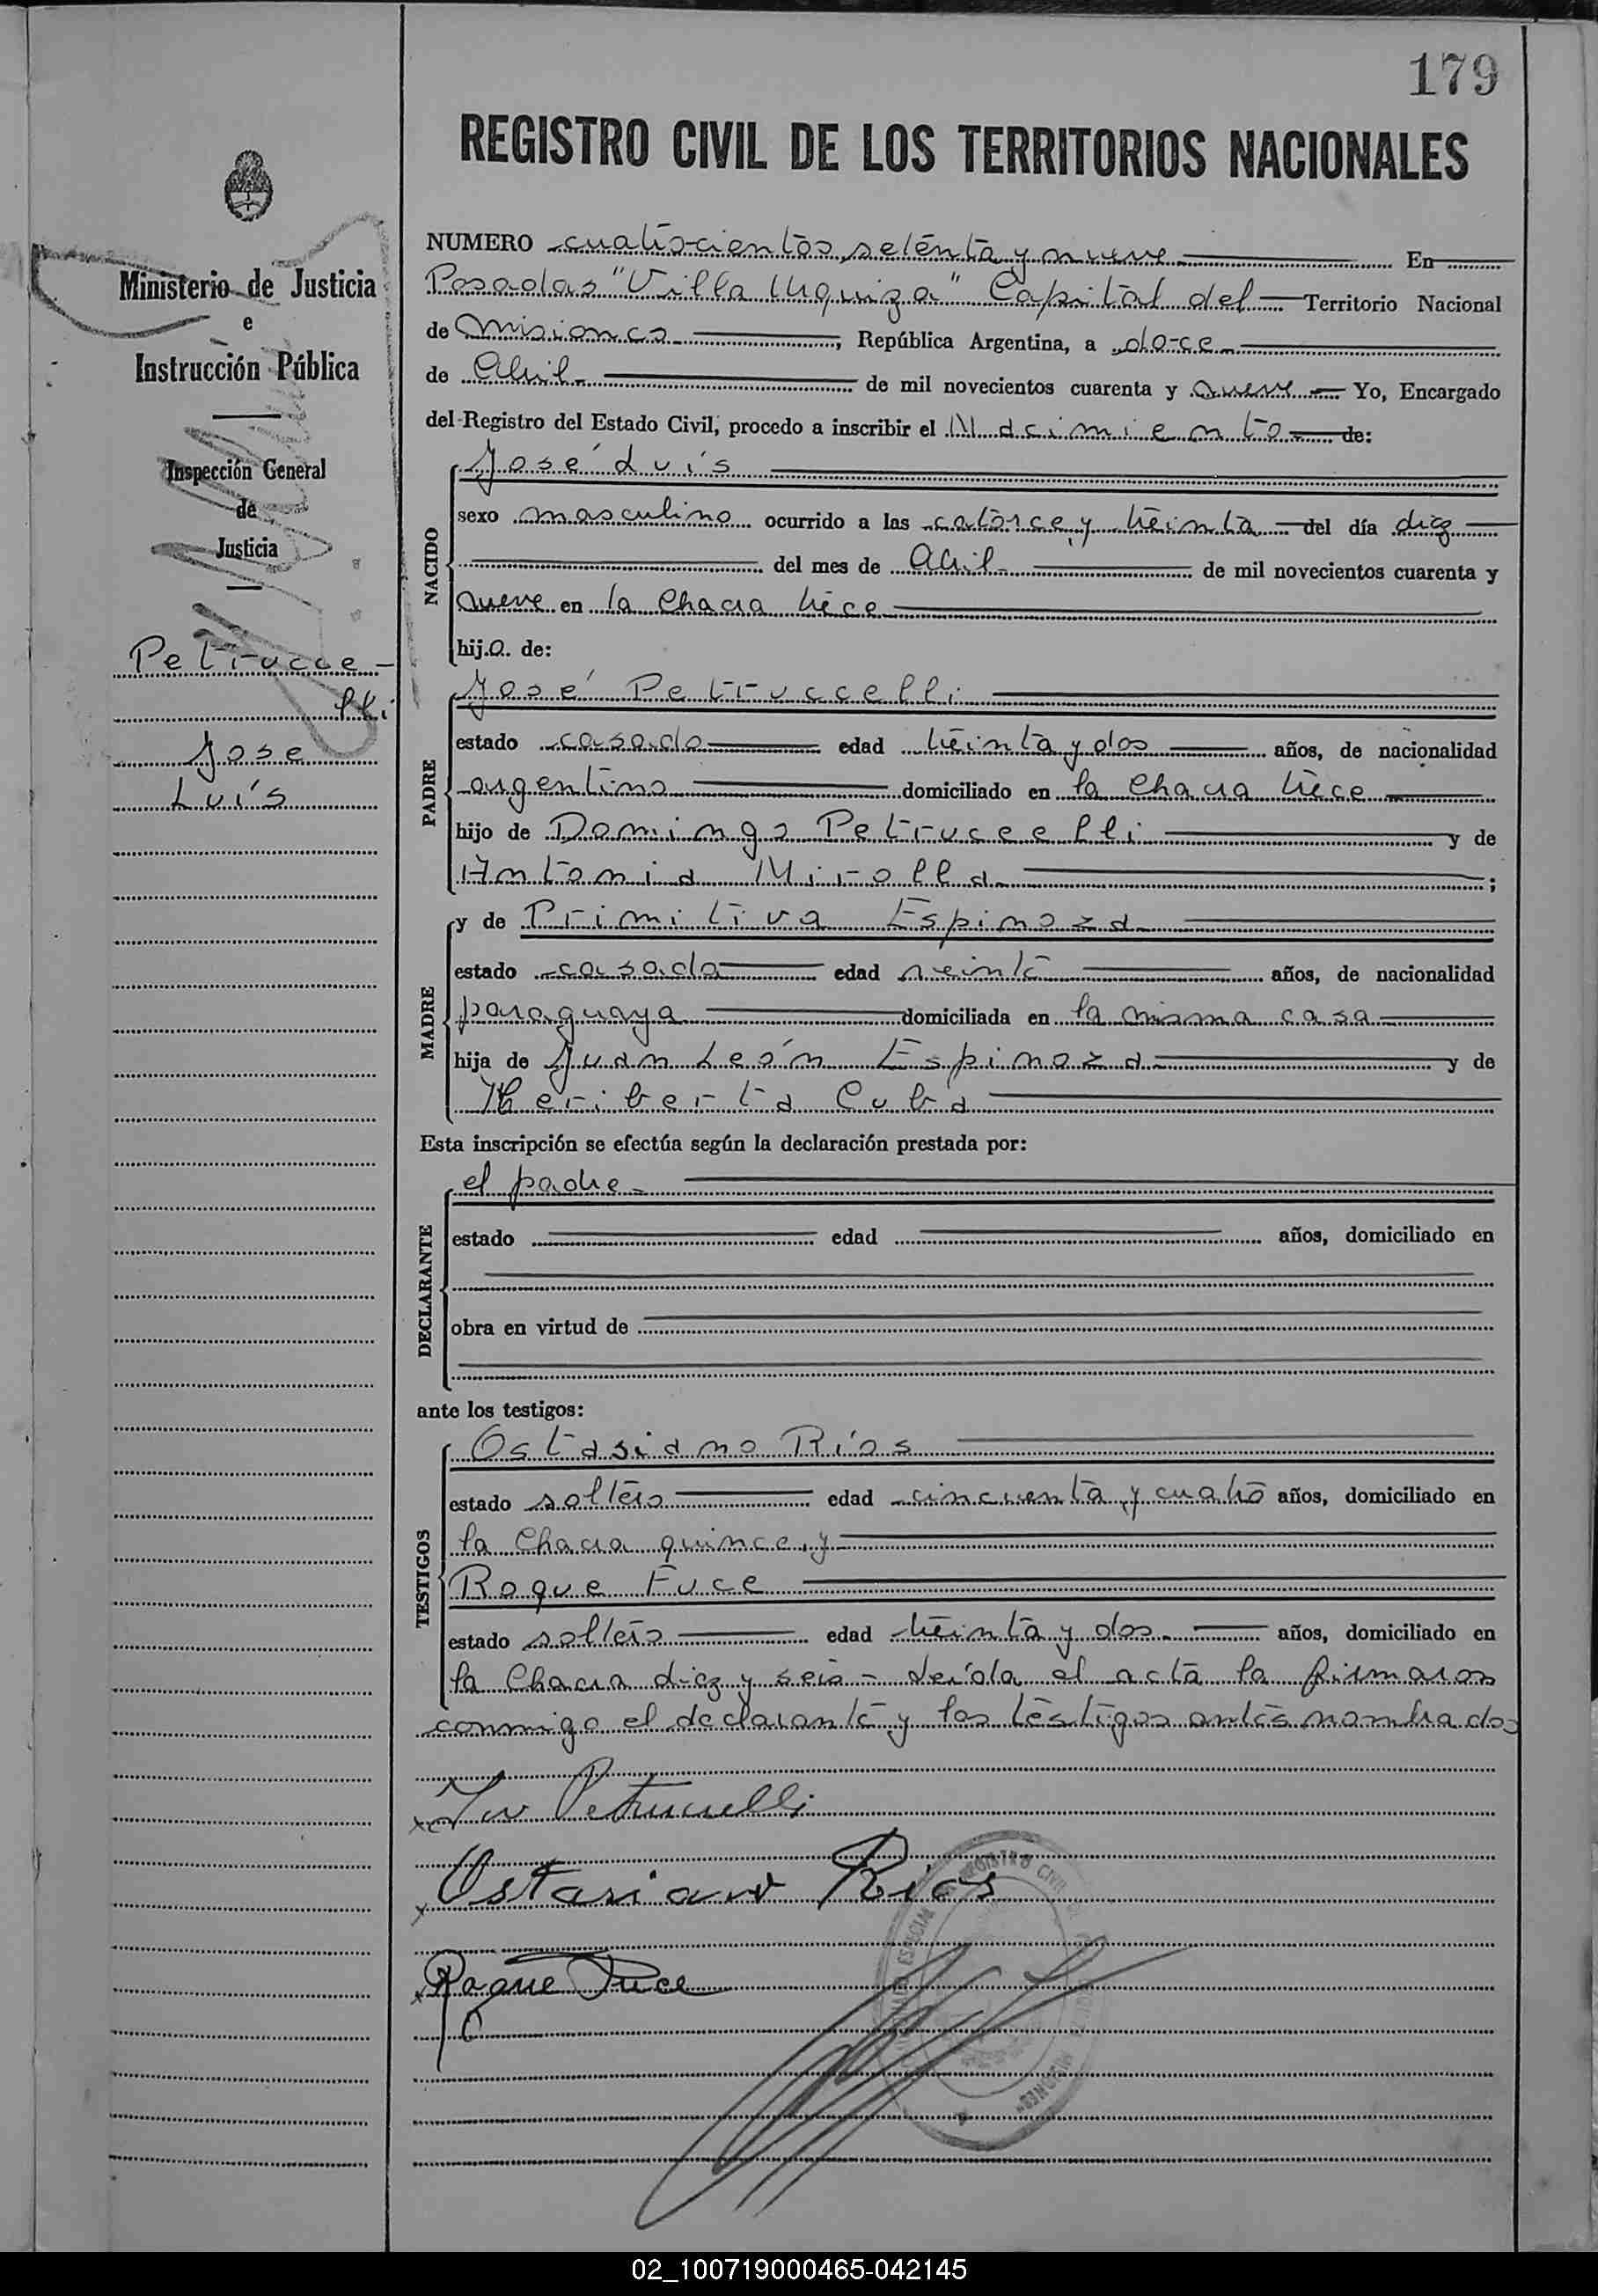 179
REGISTRO CIVIL DE LOS TERRITORIOS NACIONALES
Ministerio de Justicia
e
Instrucción Pública
Inspección General
de
Justicia
Petrucce-
lli
Jose
Luís
NUMERO cuatrocientos setenta y nueve En
Posadas "Villa Urquiza" Capital del Territorio Nacional
de Misiones, República Argentina, a doce
de Abril de mil novecientos cuarenta y nueve Yo, Encargado
del Registro del Estado Civil, procedo a inscribir el Nacimiento de:
NACIDO
José Luís
sexo masculino ocurrido a las catorce y treinta del día diez
del mes de Abril de mil novecientos cuarenta y
nueve en la Chacra trece
hijo de:
PADRE
José Petruccelli
estado casado edad treinta y dos años, de nacionalidad
argentino domiciliado en la Chacra trece
hijo de Domingo Petruccelli y de
Antonia Mirolla;
MADRE
y de Primitiva Espinoza
estado casada edad veinte años, de nacionalidad
paraguaya domiciliada en la misma casa
hija de Juan León Espinoza y de
Heriberta Cuba
Esta inscripción se efectúa según la declaración prestada por:
DECLARANTE
el padre
estado edad años, domiciliado en
obra en virtud de
ante los testigos:
TESTIGOS
Ostasiano Ríos
estado soltero edad cincuenta y cuatro años, domiciliado en
la Chacra quince y
Roque Fuce
estado soltero edad treinta y dos años, domiciliado en
la Chacra diez y seis - Leída el acta la firmaron
conmigo el declarante y los testigos antes nombrados
Petruccelli
Ostasiano Ríos
Roque Fuce
REGISTRO CIVIL
MISIONES
02_100719000465-042145